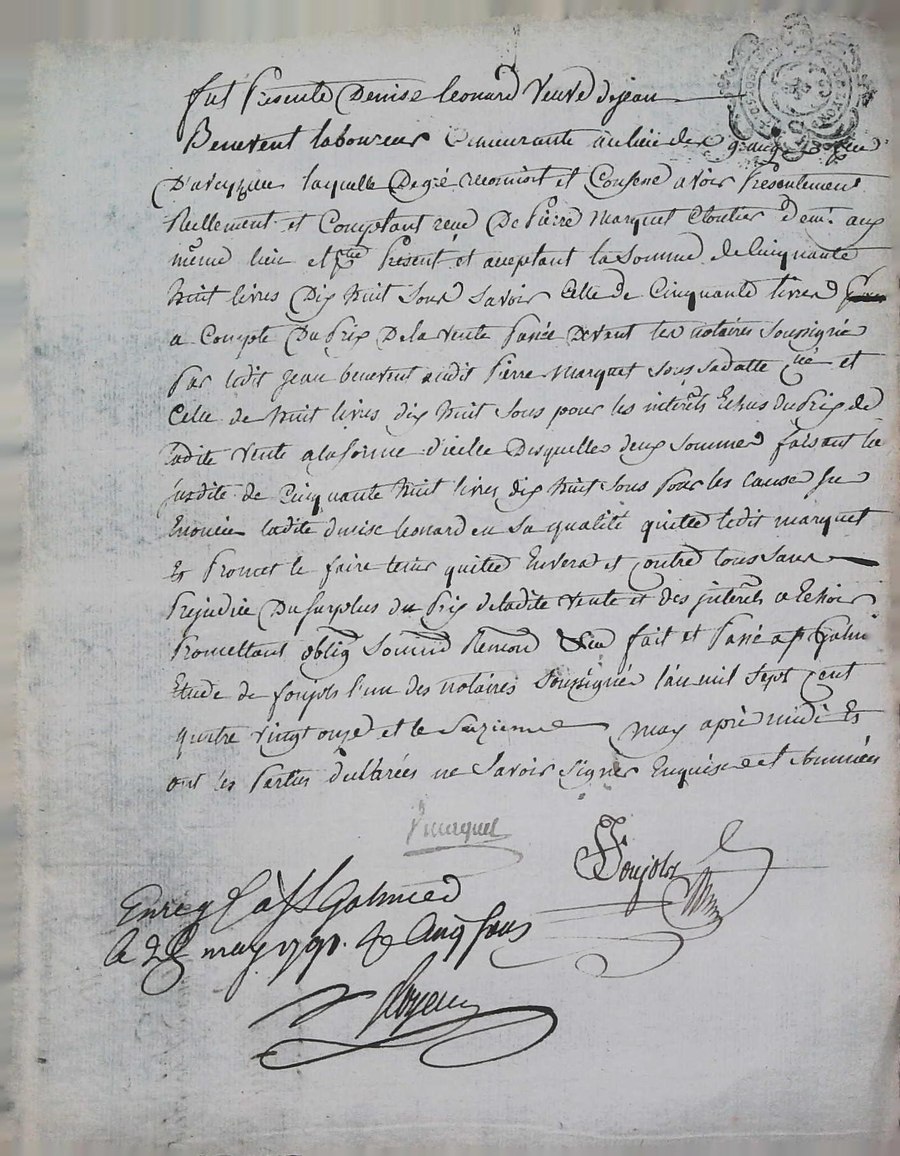 fut Presente Denise Leonard Veuve de jean
Benevent laboureur Demeurante au lieu des
D'aveyzieu laquelle De gré reconnoit et Confesse avoir Presentement
Reellement et Comptant reçu De Pierre Marquet Cloutier dem.t aux
même lieu et Present et acceptant la Somme de Cinquante
huit livres Dix huit Sous Savoir Celle de Cinquante livres
a Compte Du Prix De la Vente Passée Devant les notaires Soussignés
Par ledit Jean benevent audit Pierre Marquet Sous Sa datte et
Celle de huit livres dix huit Sous pour les interêts Echus du Prix de
ladite Vente a la forme d'icelle Desquelles deux Sommes faisant la
susdite de Cinquante huit livres dix huit Sous Pour les Causes Sus
Enoncées ladite denise leonard en Sa qualité quitte ledit marquet
Et Promet le faire tenir quitte Envers et contre tous Sans
Prejudice Du Surplus du Prix de ladite Vente et des interêts a Echoir
Promettant oblig Soumis Renon fait et Passé a St Galmi
Etude de foujols l'un des notaires Soussignés l'an mil Sept cent
quatre vingt onze et le Seizieme may après midi Et
ont les Parties declarées ne Savoir Signer Enquises et Sommées
Foujols
Enreg. à St Galmier
le may 1791. Cinq Sous